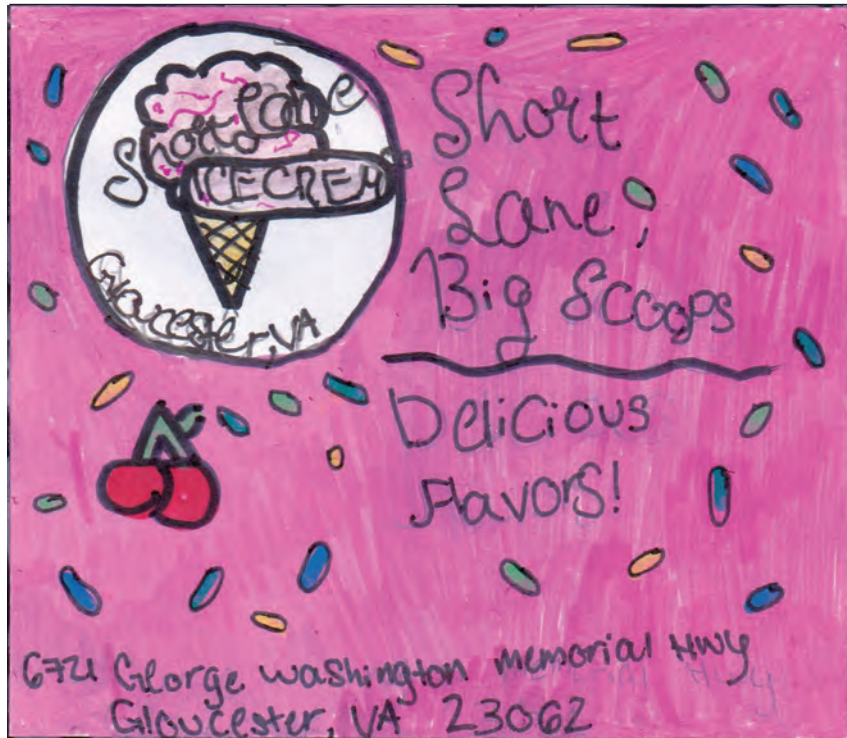 Short Lane
ICE CREM
Gloucester, VA
Short
Lane,
Big Scoops
Delicious
Flavors!
6721 George washington memorial Hwy
Gloucester, VA 23062